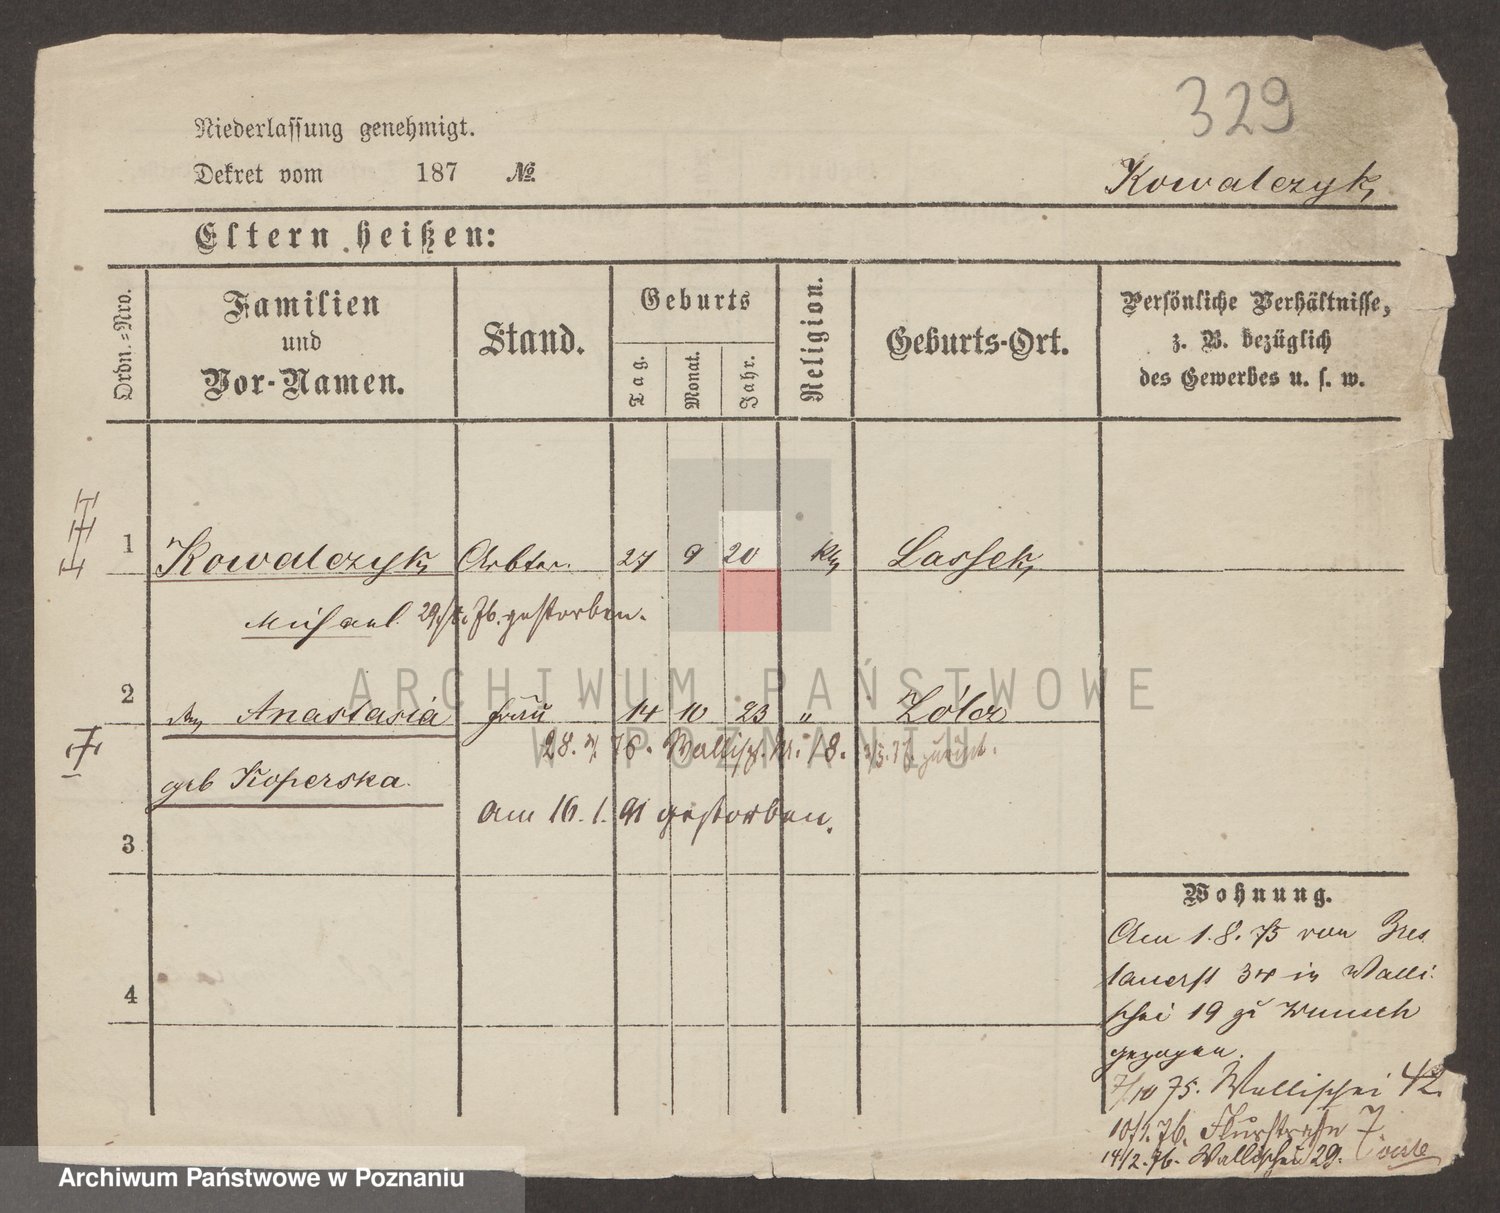 329
Niederlassung genehmigt.
Dekret vom 187 №
Kowalczyk
Eltern heißen:
Ordn.-Nro.
Familien
und
Vor-Namen.
Stand.
Geburts
Tag.
Monat.
Jahr.
Religion.
Geburts-Ort.
Persönliche Verhältnisse,
z. B. bezüglich
des Gewerbes u. s. w.
1 Kowalczyk Arbter. 27 9 20 kth Lassek
Michael 76. gestorben.
2 Anastasia Frau 14 10 23 " Żólcz
28. 76. Wallisch. 18.
geb Koperska.
Am 16. 1. 91 gestorben.
3
4
Wohnung.
Am 1. 8. 75 von Bres
lauerst 34 in Walli
schei 19 zu Wunsch
gezogen.
7/10 75. Wallischei 42.
76. Flurstraße 7
14/2. 76. Wallischei 29.
ARCHIWUM PAŃSTWOWE
W POZNANIU
Archiwum Państwowe w Poznaniu